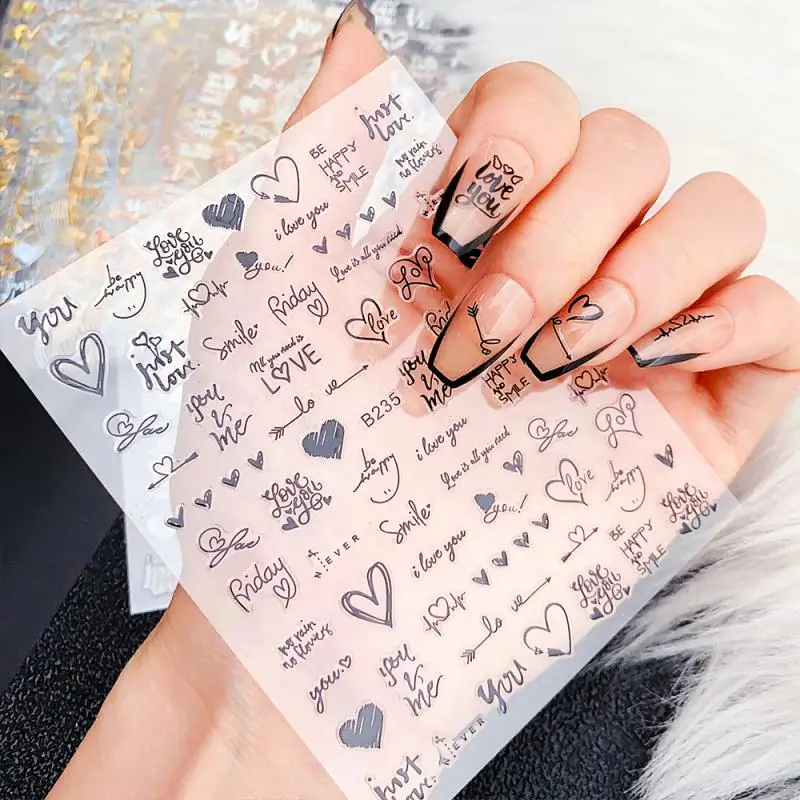 just
love.
BE
HAPPY
AND
SMILE
no rain
no flowers
love
you
i love you
Love
you
be
happy
you
you!
Love is all you need
love
Friday
love
Smile
All you need is
LOVE
just
love.
you
&
me
lo ve
you
&
me
B235
HAPPY
AND
SMILE
lo
i love you
Love is all you need
love
be
happy
love
be
happy
Love
you
you!
Smile
Love
you
BE
HAPPY
AND
SMILE
i love you
NEVER
Friday
lo ve
Love
you
no rain
no flowers
you
you
&
me
you
NEVER
just
love.